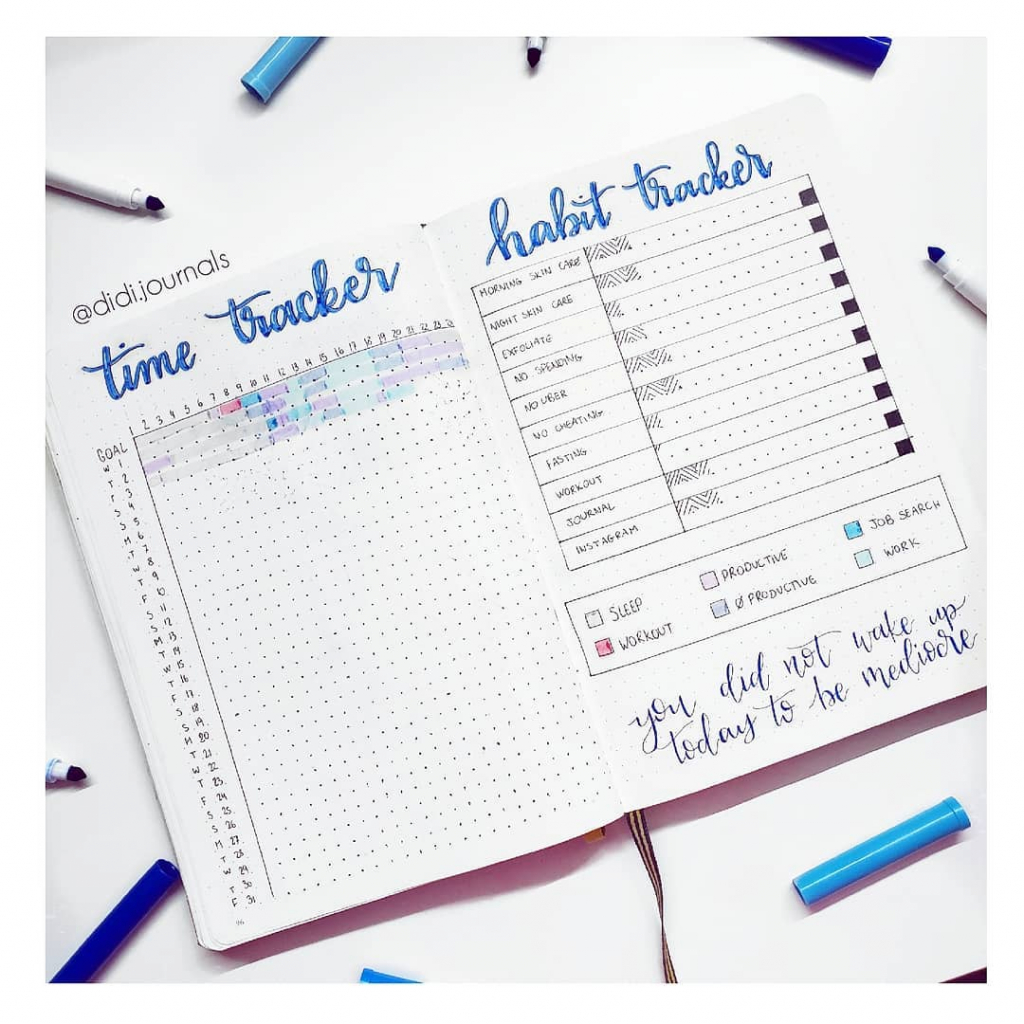 @didi.journals
time tracker
1 2 3 4 5 6 7 8 9 10 11 12 13 14 15 16 17 18 19 20 21 22 23
GOAL
W 1
T 2
F 3
S 4
S 5
M 6
T 7
W 8
T 9
F 10
S 11
S 12
M 13
T 14
W 15
T 16
F 17
S 18
S 19
M 20
T 21
W 22
T 23
F 24
S 25
S 26
M 27
T 28
W 29
T 30
F 31
habit tracker
MORNING SKIN CARE
NIGHT SKIN CARE
EXFOLIATE
NO SPENDING
NO UBER
NO CHEATING
FASTING
WORKOUT
JOURNAL
INSTAGRAM
SLEEP PRODUCTIVE JOB SEARCH
WORKOUT Ø PRODUCTIVE WORK
you did not wake up
today to be mediocre